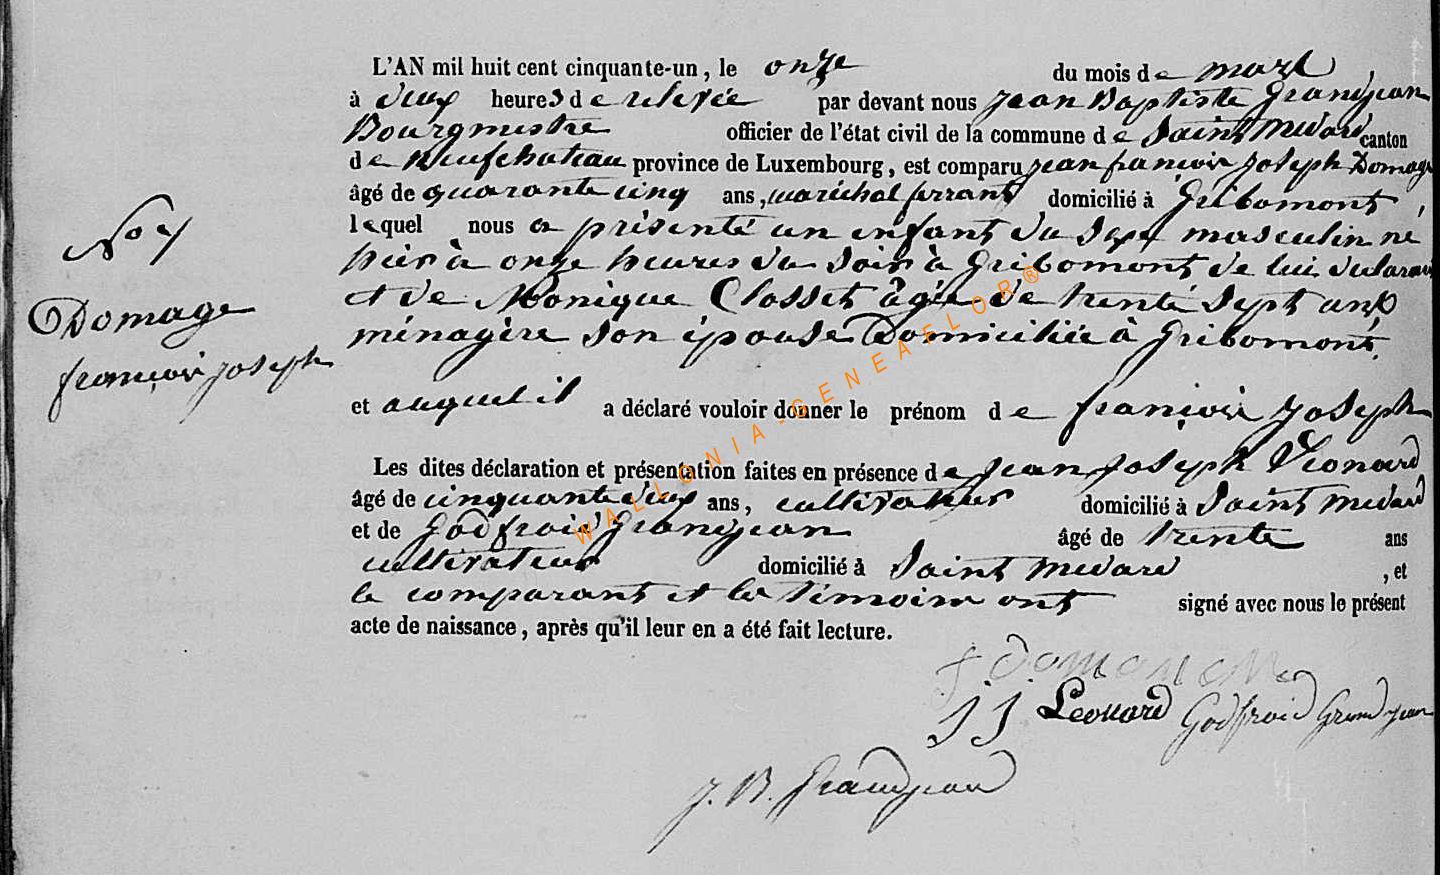 L'AN mil huit cent cinquante-un, le onze du mois de mars
à deux heures de relevée par devant nous Jean Baptiste Grandjean
Bourgmestre officier de l'état civil de la commune de Saint Médard canton
de Neufchateau province de Luxembourg, est comparu jean françois Joseph Domage
âgé de quarante cinq ans, maréchal ferrant domicilié à Gribomont,
lequel nous a présenté un enfant du sexe masculin né
hier à onze heures du soir à Gribomont de lui déclarant
et de Monique Closset âgée de trente sept ans
ménagère son épouse Domiciliée à Gribomont.
No
Domage
françois joseph
et auquel il a déclaré vouloir donner le prénom de françois Joseph
Les dites déclaration et présentation faites en présence de Jean Joseph Léonard
âgé de cinquante deux ans, cultivateur domicilié à Saint Médard
et de Godfroid Grandjean âgé de trente ans
cultivateur domicilié à Saint Medard, et
le comparant et les témoins ont signé avec nous le présent
acte de naissance, après qu'il leur en a été fait lecture.
J J Leonard Godfroid Grandjean
J. B. Grandjean
WALLONIA-GENEAFLOR®